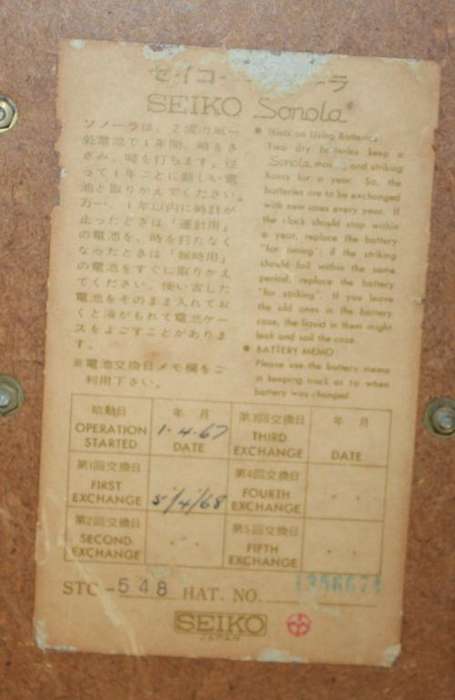 セイコー ーラ
SEIKO Sonola
ソノーラは、2個の単一
乾電池で1年間、時をき
ざみ、時を打ちます。従
って1年ごとに新しい電
池と取りかえてください。
万一、1年以内に時計が
止ったときは「運針用」
の電池を、時を打たなく
なったときは「報時用」
の電池をすぐに取りかえ
てください。使い古した
電池をそのまま入れてお
くと液がもれて電池ケー
スをよごすことがありま
す。
※電池交換日メモ欄をご
利用下さい。
Hints on Using Batteries
Two dry batteries keep a
Sonola, and striking
hours for a year. So, the
batteries are to be exchanged
with new ones every year. If
the clock should stop within
a year, replace the battery
"for timing"; if the striking
should fail within the same
period, replace the battery
"for striking". If you leave
the old ones in the battery
case, the liquid in them might
leak and soil the case.
BATTERY MEMO
Please use the battery memo
in keeping track as to when
battery was changed
始動日 年 月 第3回交換日 年 月
OPERATION STARTED 1.4.67 DATE THIRD EXCHANGE DATE
第1回交換日 第4回交換日
FIRST EXCHANGE 5/4/68 FOURTH EXCHANGE
第2回交換日 第5回交換日
SECOND EXCHANGE FIFTH EXCHANGE
STC-548 HAT. NO.
SEIKO
JAPAN